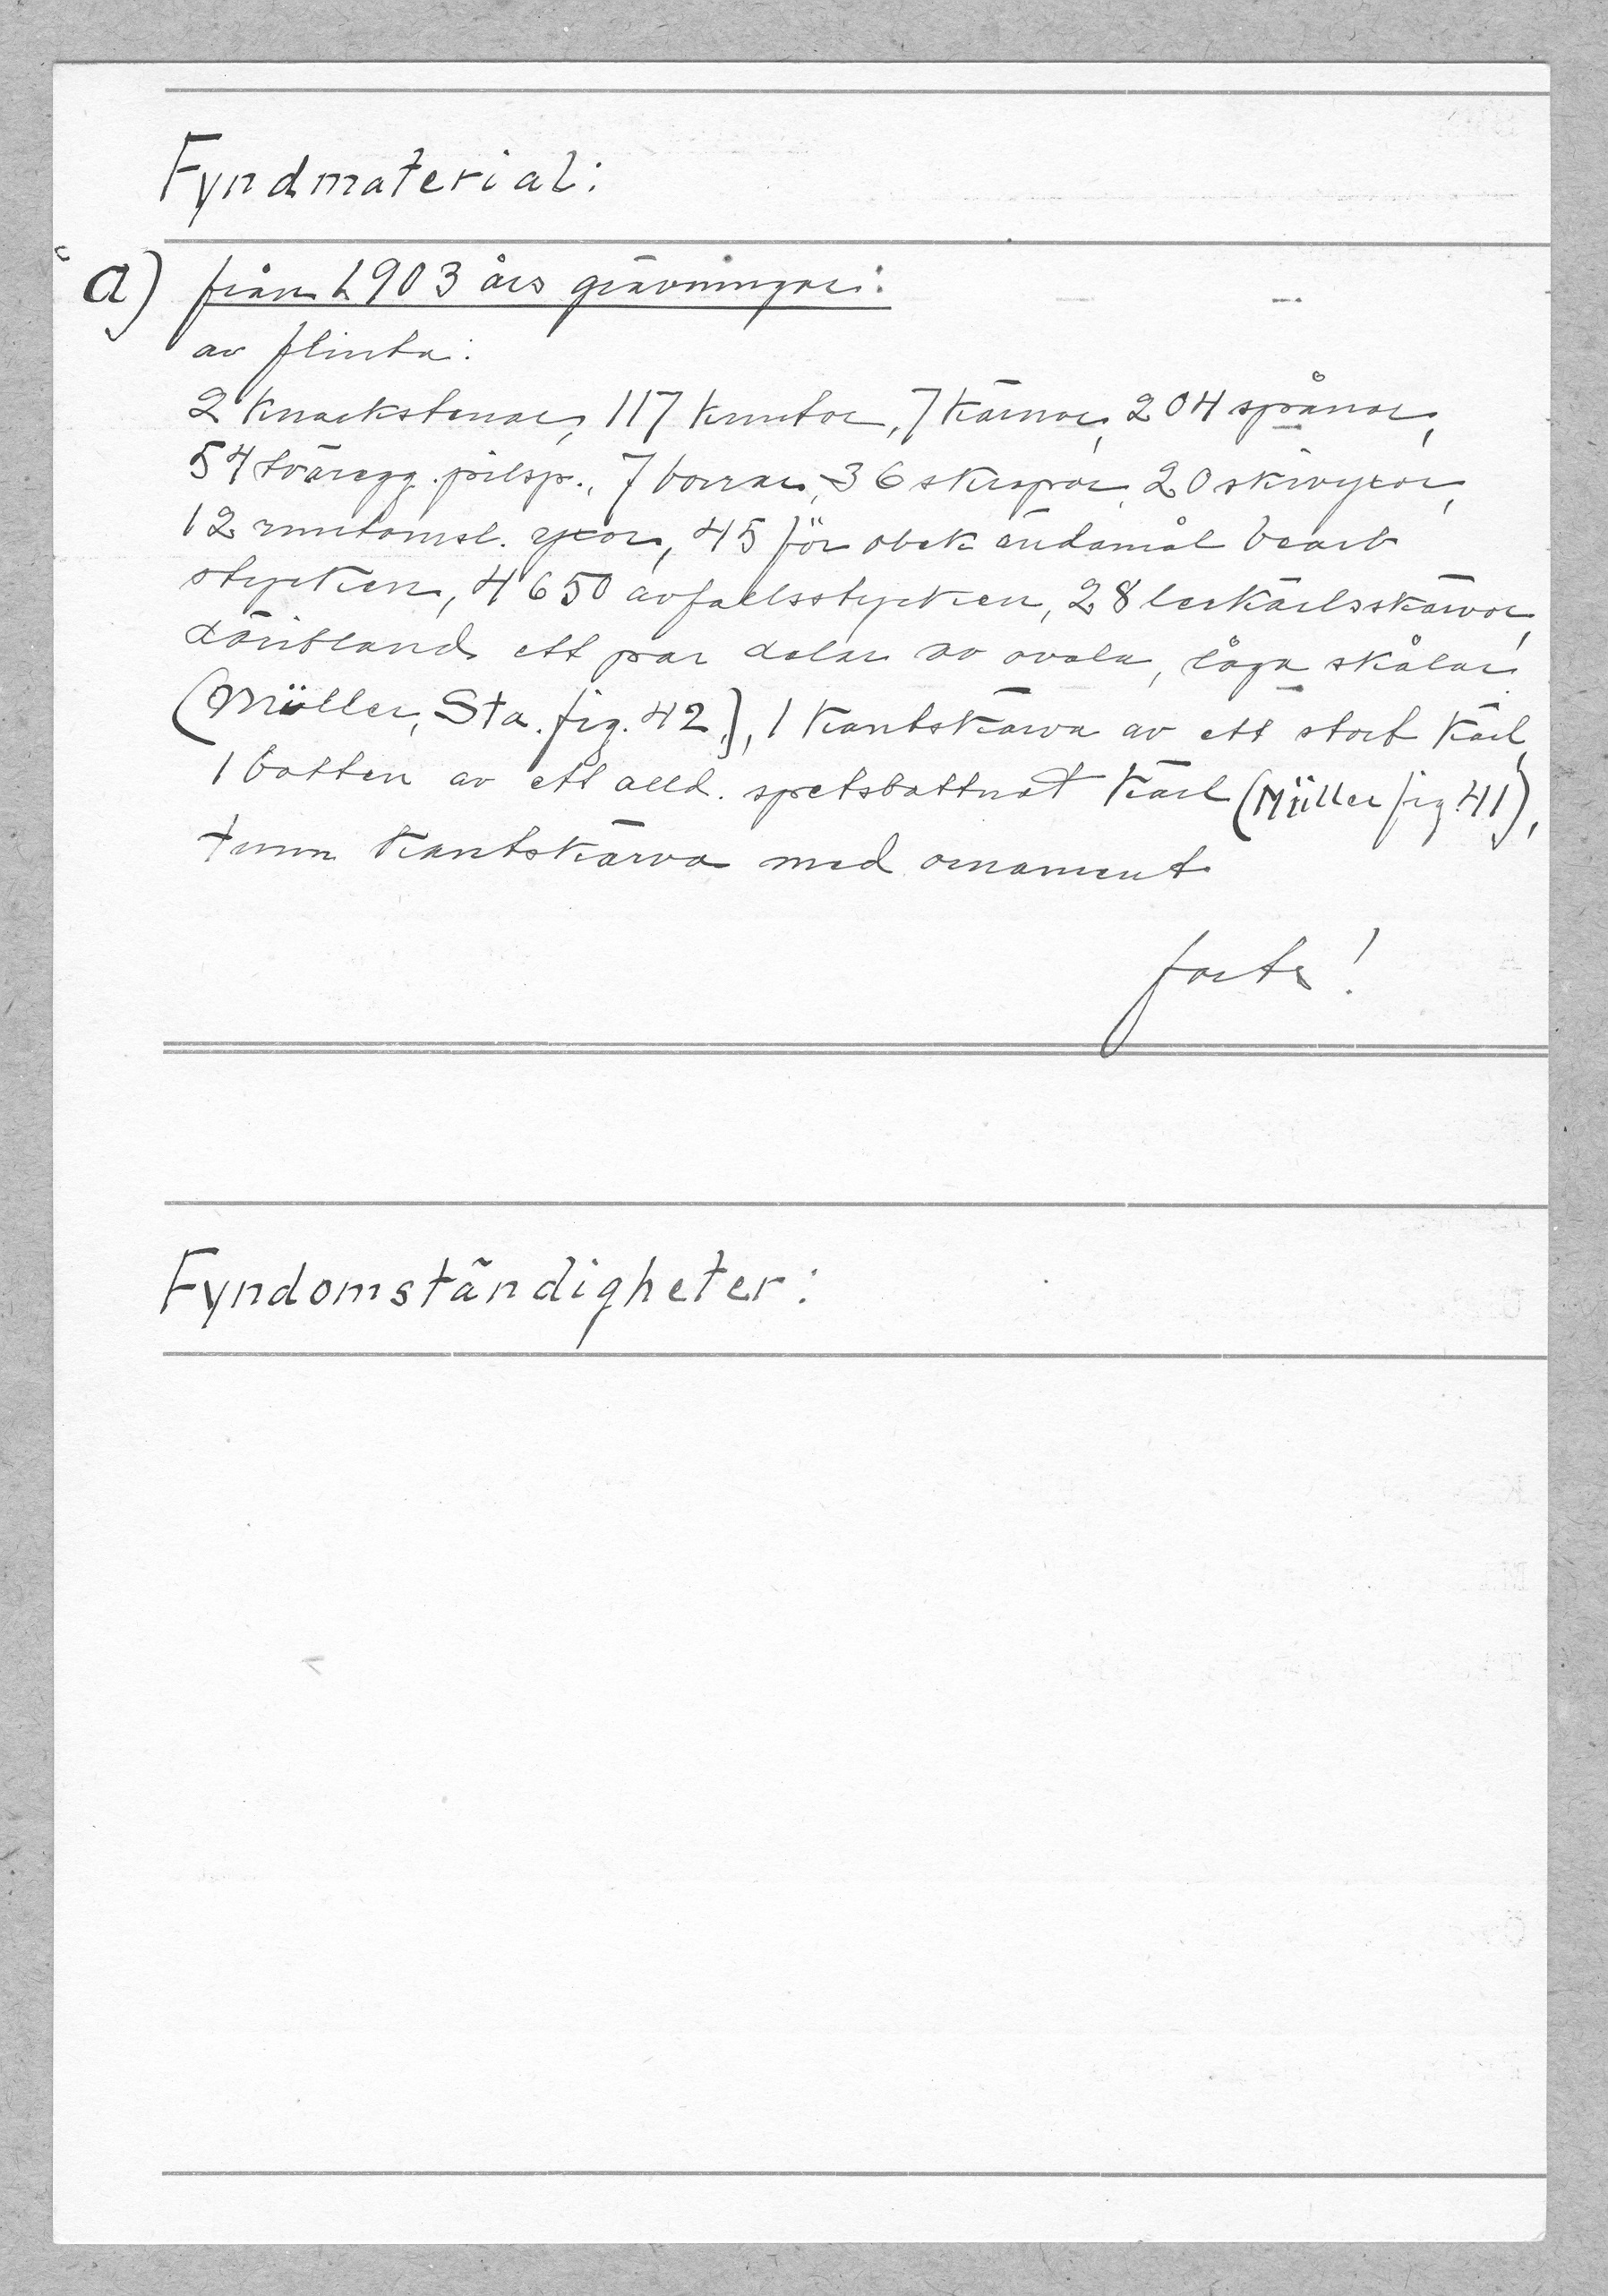 Fyndmaterial:
a) från 1903 års grävningar:
av flinta:
2 knackstenar, 117 knutor, 7 kärnor, 204 spånor,
54 tväregg. pilsp., 7 borrar, 36 skrapor, 20 skivyxor,
12 runtomsl. yxor, 45 för obek ändamål bearb
stycken, 4650 avfallsstycken, 28 lerkärlsskärvor,
däribland ett par delar av ovala, låga skålar
(Müller, Sta. fig. 42), 1 kantskärva av ett stort kärl,
1 botten av ett alld. spetsbottnat kärl (Müller fig. 41),
tunn kantskärva med ornament
forts!
Fyndomständigheter: